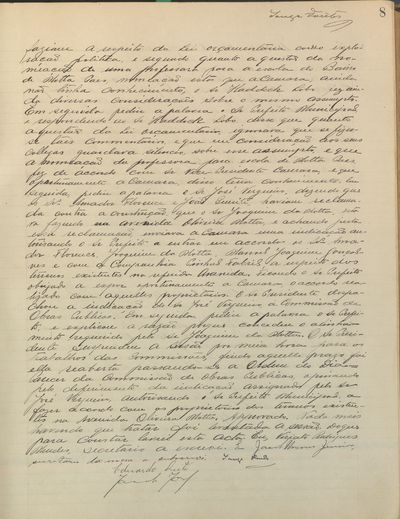 8
faziam a respeito da lei orçamentaria como explo-
ração politica, e segundo quanto a questão da no-
meação de uma professora para a escola do Bairro
de Motta Paes, nomeação esta que a Camara, ainda
não tinha conhecimento, e o Sr Haddock Lobo, fazia
diversas considerações sobre o mesmo assumpto.
Em seguida pediu a palavra o Sr Prefeito Municipal
e respondendo ao Sr Haddock Lobo disse que quanto
a questão da lei orcamentaria, ignorava que se fizes-
se taes commentarios, e que em consideração aos seus
collegas guardava silencio, sobre esse assumpto, e que
a nomeação da professora para escola de Motta Paes
fez de accordo com o Sr Vice Presidente da Camara, e que
opportunamente a Camara, disso teria conhecimento. Em
seguida pediu a palavra o Sr José Vizeiro, dizendo que
os Srs Amador Florence e José Benito haviam reclama-
do contra a construcção que o Sr Joaquim da Motta, es-
ta fazendo na avenida Oliveira Motta, e achando justa
essa reclamação, enviava a Camara uma indicação au-
torisando o Sr Prefeito a entrar em accordo os Srs Ama-
dor Florence, Joaquim da Motta, Manoel Joaquim Gonçal-
ves e com a Companhia
terrenos existentes na referida Avenida, ficando o Sr Prefeito
obrigado a expor opportunamente a Camara o accordo rea-
lizado com aquelles proprietarios. O Sr Presidente despa-
chou a indicação do Sr José Vizeiro, a Commissão de
Obras Publicas. Em seguida pediu a palavra o Sr Prefei-
to, e explicou a razão porque concedeu o alinha-
mento requerido pelo Sr Joaquim da Motta. O Sr Presi-
dente suspendeu a sessão por meia hora para os
trabalhos das Commissões, findo aquelle prazo foi
ella reaberta passando-se a Ordem do Dia.
Parecer da Commissão de Obras Publicas, opinando
pelo deferimento da indicação assignada pelo Sr
José Vizeiro, autorisando o Sr Prefeito Municipal, a
fazer accordo com os proprietarios dos terrenos existen-
tes na Avenida Oliveira Motta, Approvado. Nada mais
havendo que tratar foi levantada a sessão do que
para constar lavrei esta Acta. Eu
Mendes, secretario a escrevi.
Eduardo